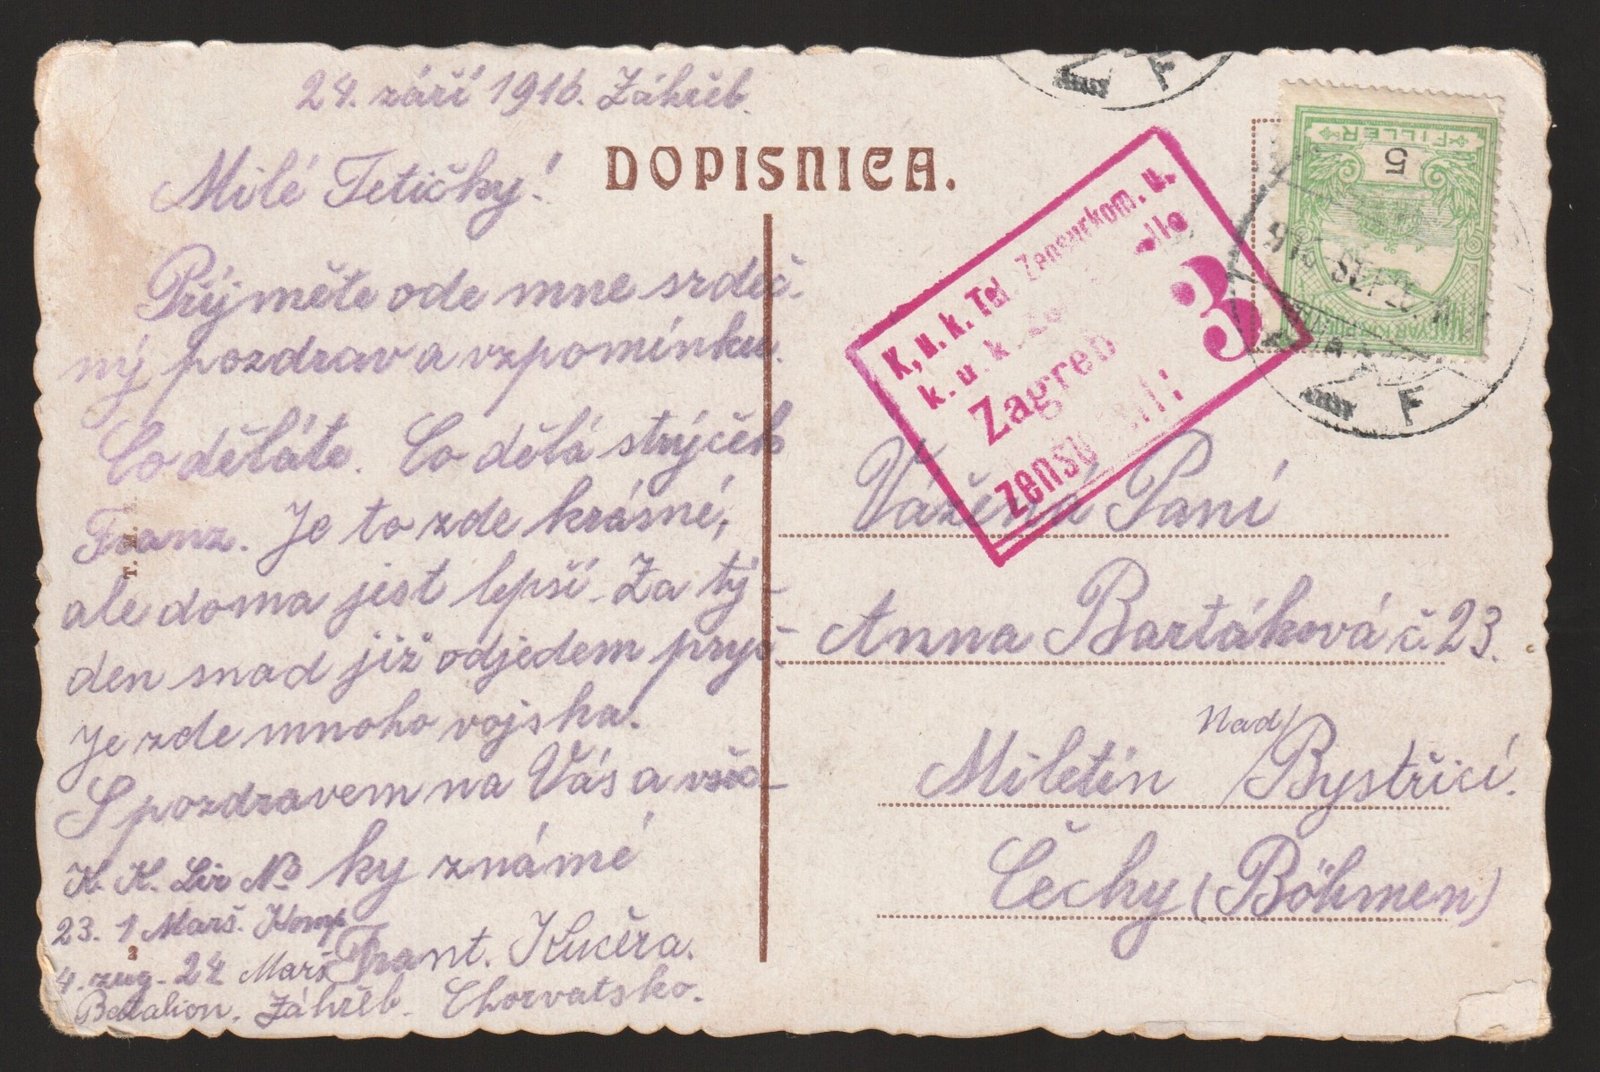 24. září 1916. Záhřeb.
DOPISNICA.
Milé Tetičky!
Přijměte ode mne srdeč-
ný pozdrav a vzpomínku.
Co děláte. Co dělá strýček
Franz. Je to zde krásné,
ale doma jest lepší. Za tý-
den snad již odjedem pryč.
Je zde mnoho vojska.
S pozdravem na Vás a všec-
ky známé
Frant. Kučera.
K. K. Lir No
23. 1 Marš. Komp
4. zug. 24 Marš
Batalion. Záhřeb. Chorvatsko.
T.
2
K. u. k. Tel. Zensurkom. u.
k. u. k.
Zagreb
3
FILLER
5
MAGYAR
916 SEP
F
F
Vážená Paní
Anna Bartáková č. 23.
Miletín Nad/Bystřicí.
Čechy (Böhmen)